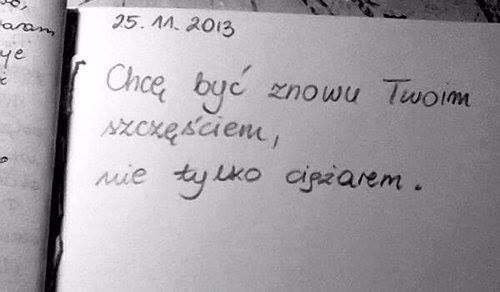 aram
25.11.2013
Chcę być znowu Twoim
szczęściem,
nie tylko ciężarem.